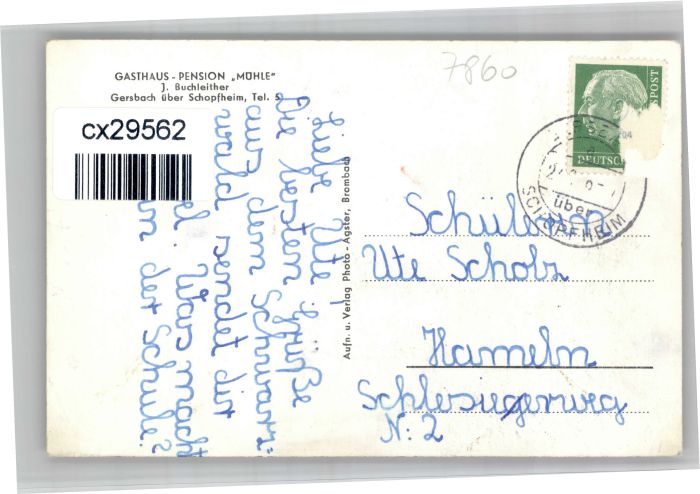 GASTHAUS - PENSION „MÜHLE"
J. Buchleither
Gersbach über Schopfheim, Tel. 5
cx29562
7860
POST
DEUTSC
über
SCHOPFHEIM
Liebe Ute!
Die besten Grüße
aus dem Schwarz-
wald sendet dir
Was macht
der Schule?
Aufn. u. Verlag Photo - Agster, Brombach
Schülerin
Ute Scholz
Hameln
Schlesiegerweg
N: 2